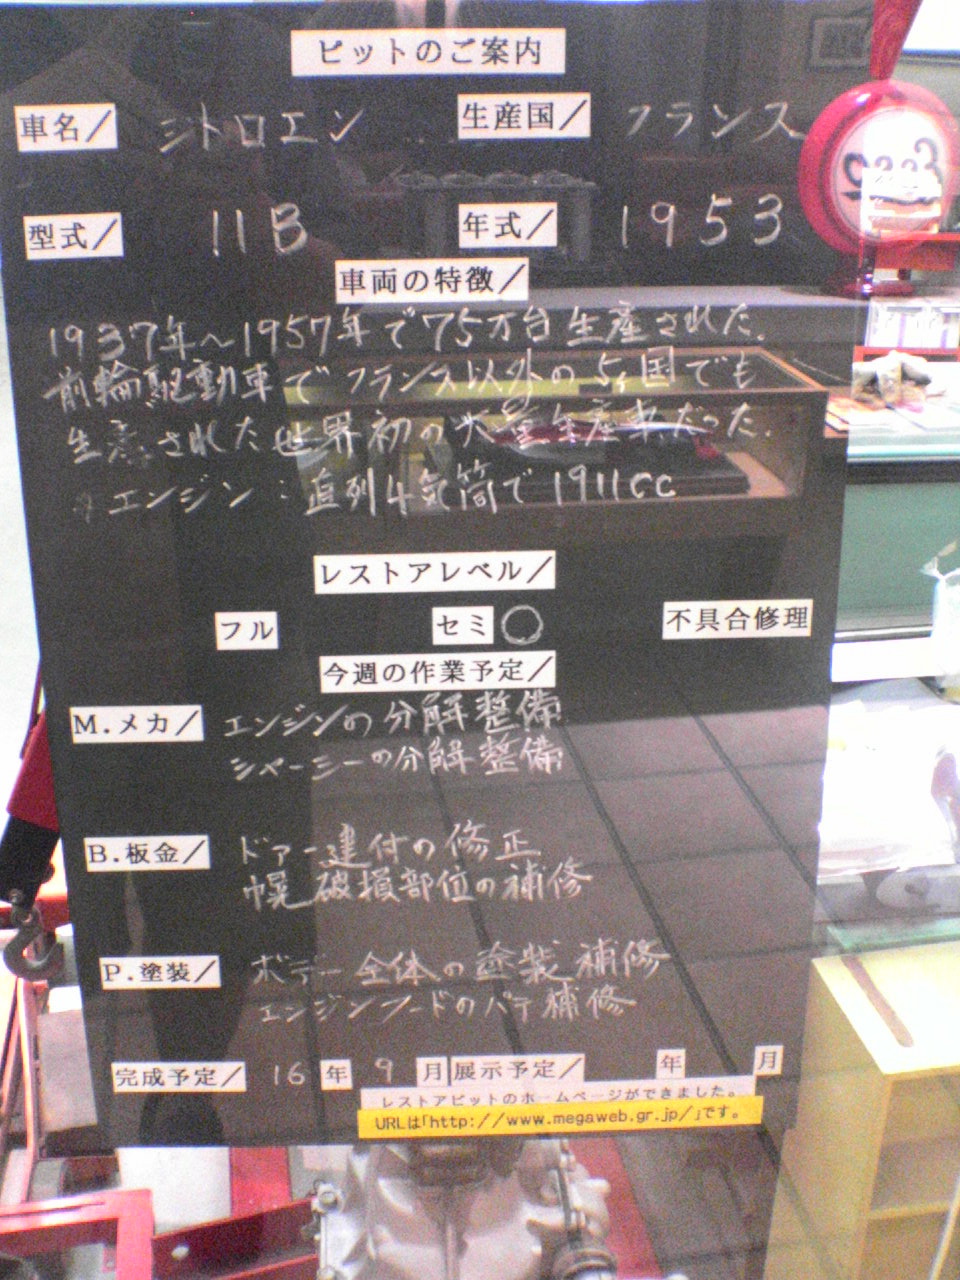 ピットのご案内
車名／ シトロエン 生産国／ フランス
型式／ 11B 年式／ 1953
車両の特徴／
1937年～1957年で75万台生産された。
前輪駆動車でフランス以外の5ヶ国でも
生産された世界初の大量生産車だった。
エンジン：直列4気筒で1911cc
レストアレベル／
フル セミ○ 不具合修理
今週の作業予定／
M.メカ／ エンジンの分解整備
シャーシーの分解整備
B.板金／ ドアー建付の修正
幌破損部位の補修
P.塗装／ ボデー全体の塗装補修
エンジンフードのパテ補修
完成予定／ 16年 9月 展示予定／ 年 月
レストアピットのホームページができました。
URLは「http://www.megaweb.gr.jp/」です。